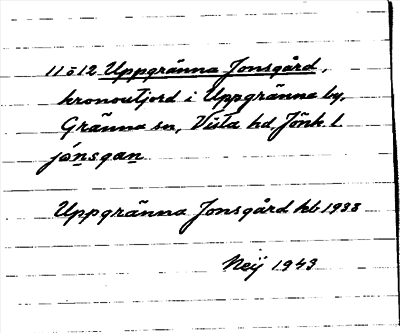 11 o 12 Uppgränna Jonsgård,
kronoutjord i Uppgränna by,
Gränna sn, Vista hd, Jönk. l
jónsgan
Uppgränna Jonsgård kb 1933
Neij 1943